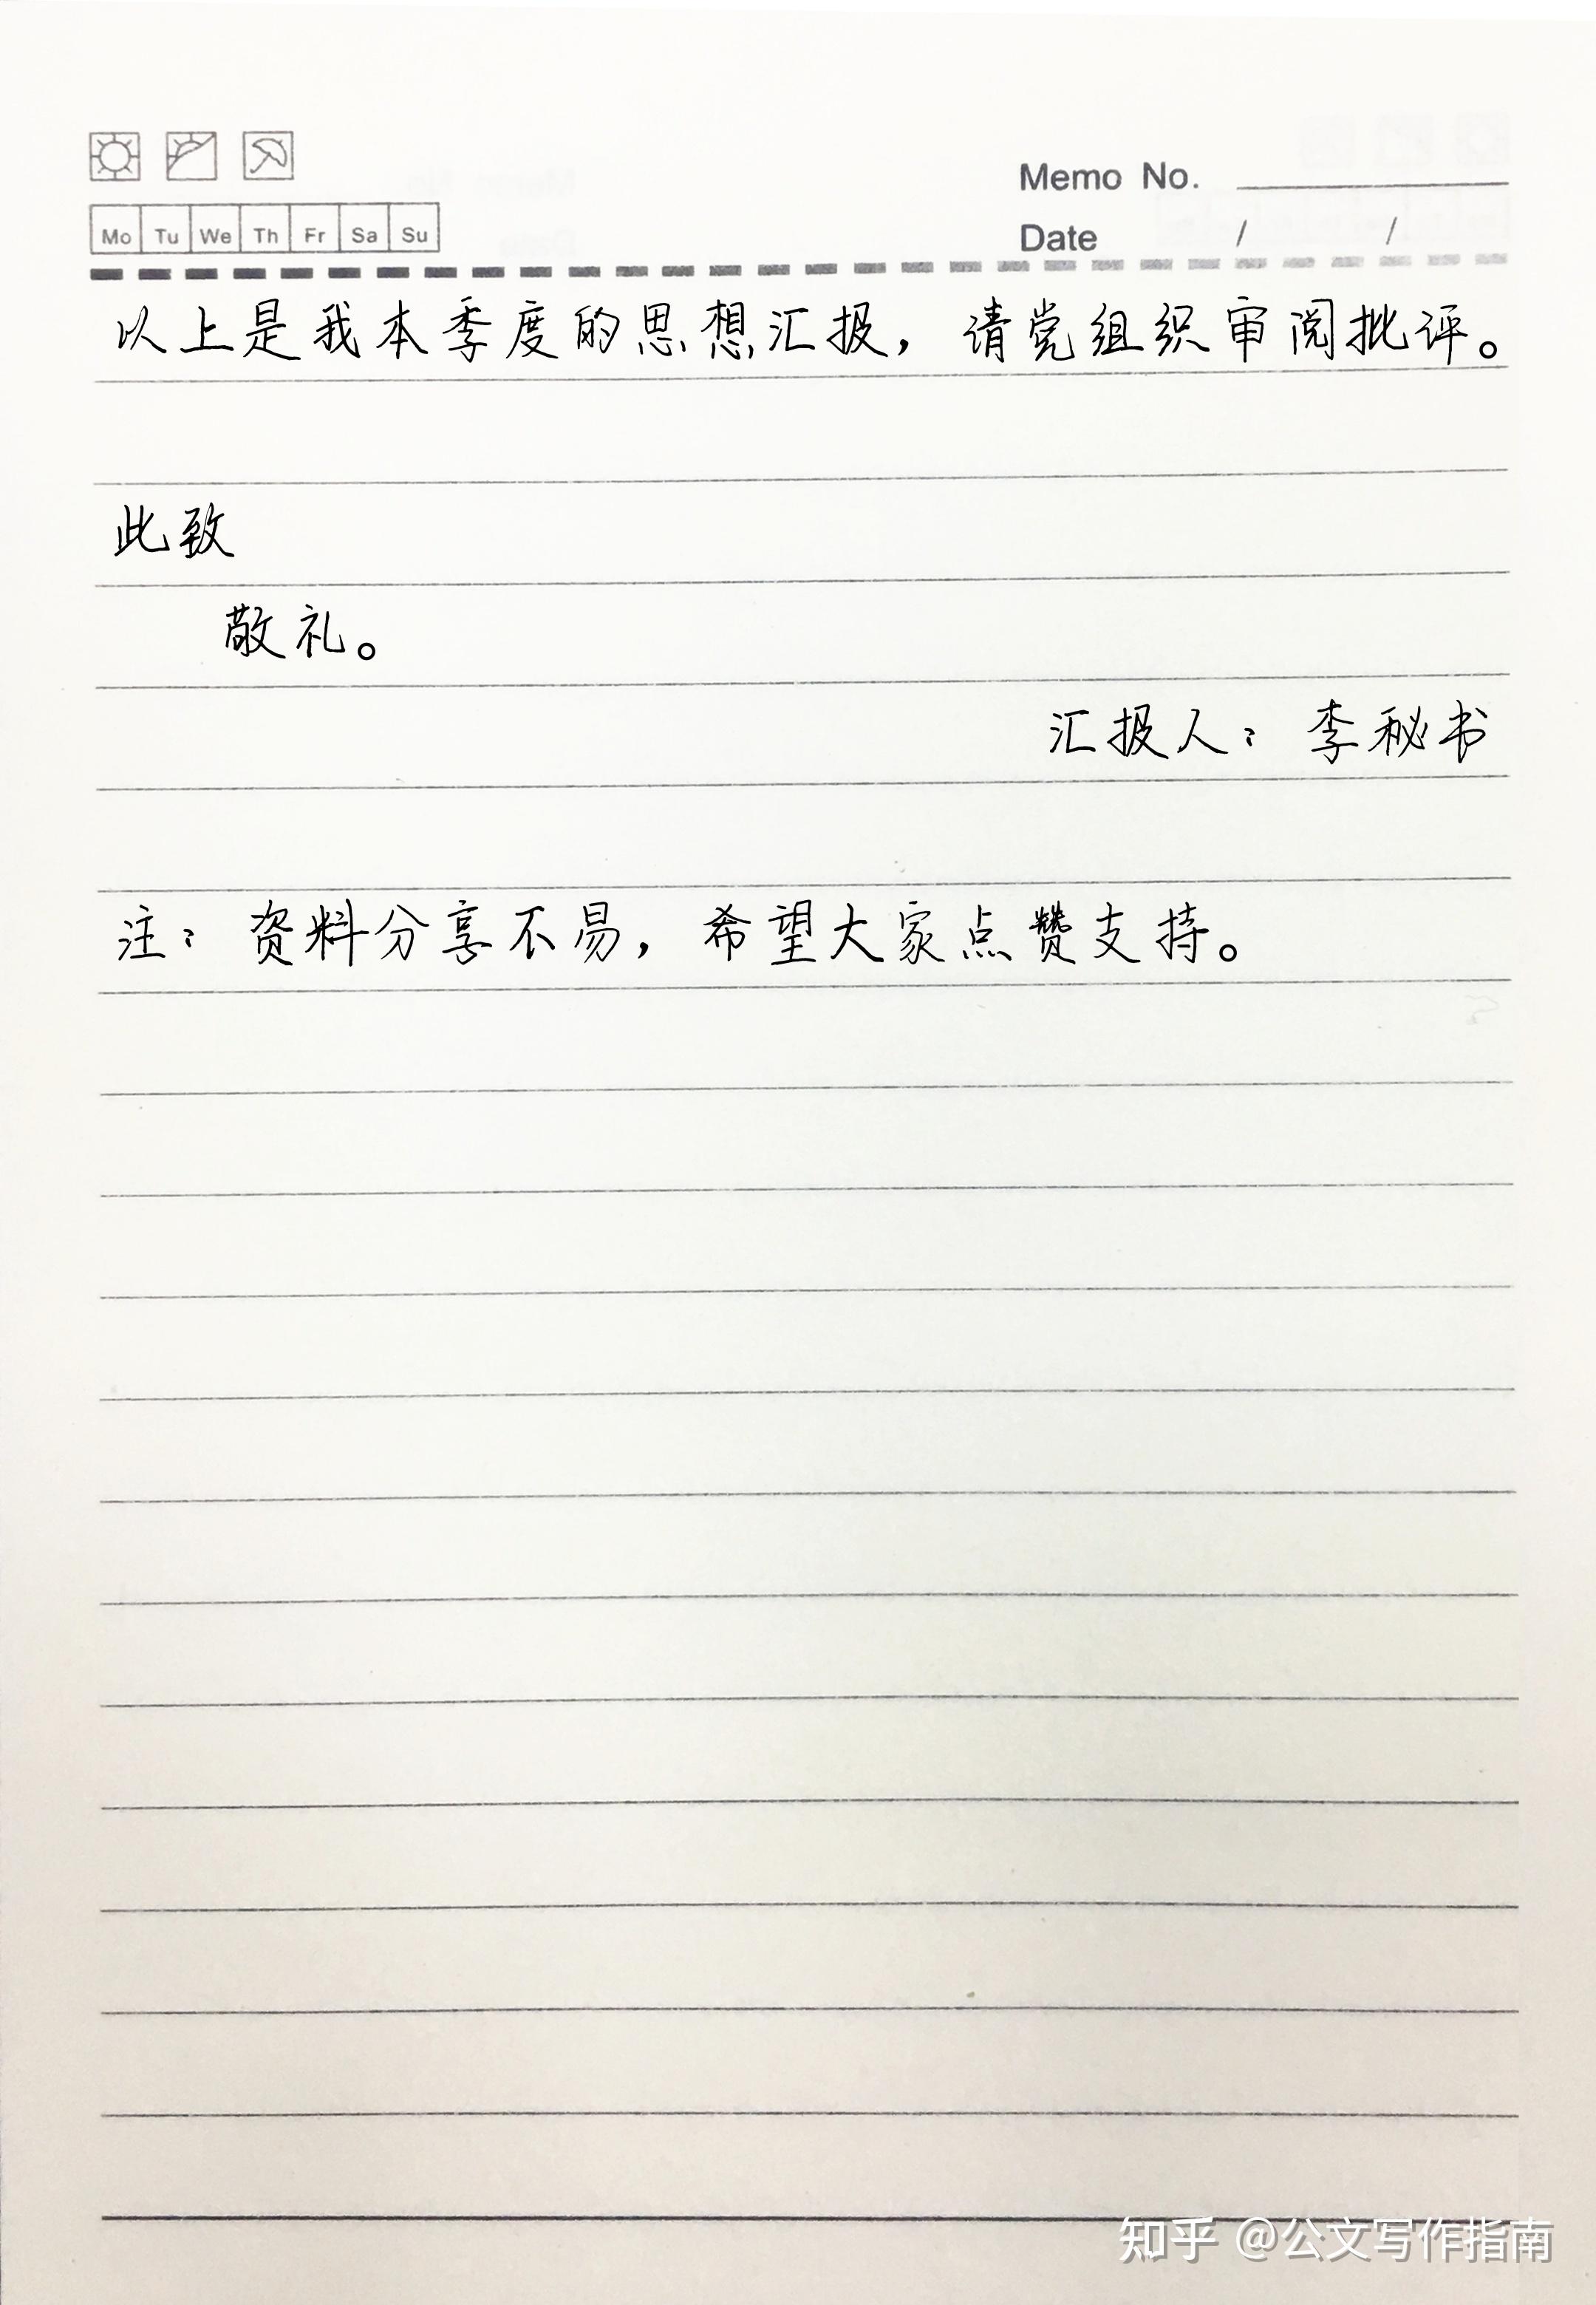 Memo No.
Mo Tu We Th Fr Sa Su
Date / /
以上是我本季度的思想汇报，请党组织审阅批评。
此致
敬礼。
汇报人：李秘书
注：资料分享不易，希望大家点赞支持。
知乎 @公文写作指南